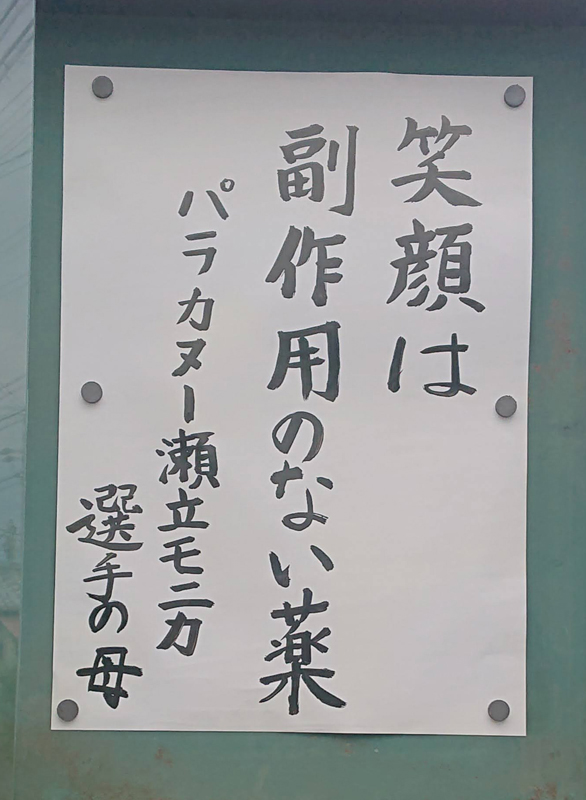 笑顔は
副作用のない薬
パラカヌー瀬立モニカ
選手の母